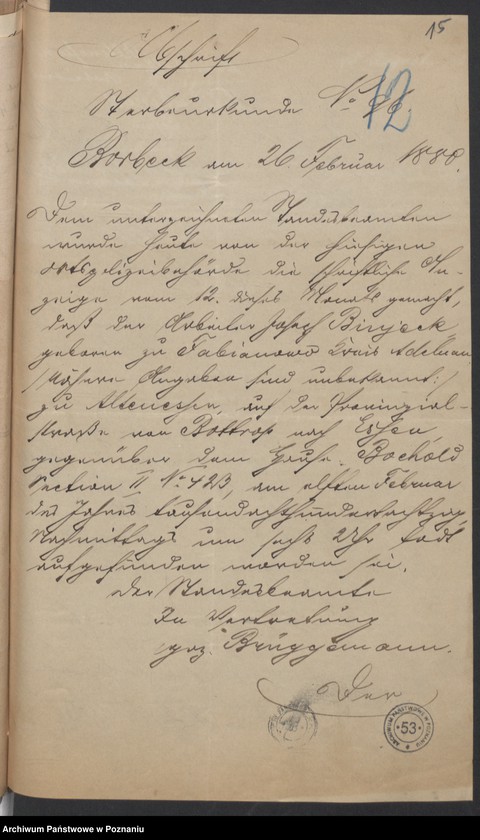 15
Abschrift
Sterbeurkunde No
12
Borbeck am 26. Februar 1880.
Dem unterzeichneten Standesbeamten
wurde heute von der hiesigen
Ortspolizeibehörde die schriftliche An-
zeige vom 12. dieses Monats gemacht,
daß der Arbeiter Josef
geboren zu Fabianowo Kreis Adelnau
/:Nähere Angaben sind unbekannt:/
zu Altenessen, auf der Provinzial-
straße von Bottrop nach Essen,
gegenüber dem Hause Bochold
Section II No 423, am elften Februar
des Jahres tausendachthundertachtzig,
Nachmittags um sechs Uhr todt
aufgefunden worden sei.
Der Standesbeamte
In Vertretung
gez. Brüggemann.
Der
ARCHIWUM PAŃSTWOWE W POZNANIU
53
Archiwum Państwowe w Poznaniu